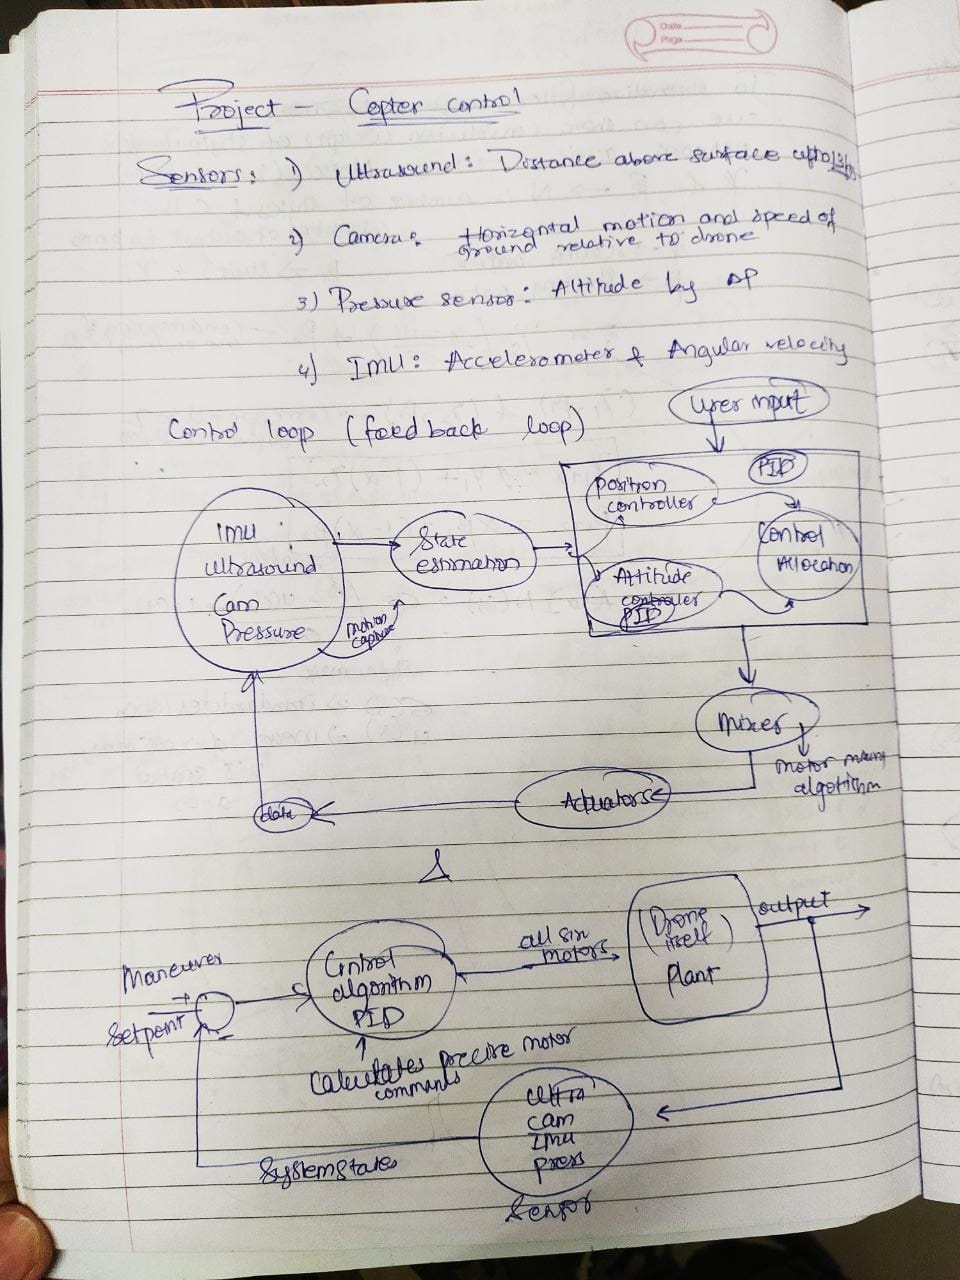 Date
Page
Project - Copter control
Sensors: 1) Ultrasound: Distance above surface upto
2) Camera: Horizontal motion and speed of
ground relative to drone
3) Pressure sensor: Altitude by ΔP
4) IMU: Accelerometer & Angular velocity
Control loop (feedback loop)
User input
IMU
Ultrasound
Cam
Pressure
motion
capture
State
estimation
Position
controller
PID
Attitude
controller
PID
Control
Allocation
Mixer
motor mixing
algorithm
Actuators
data
Maneuver
Setpoint
Control
algorithm
PID
Calculates precise motor
commands
all six
motors
(Drone
itself)
Plant
output
Ultra
cam
IMU
press
Sensor
System states